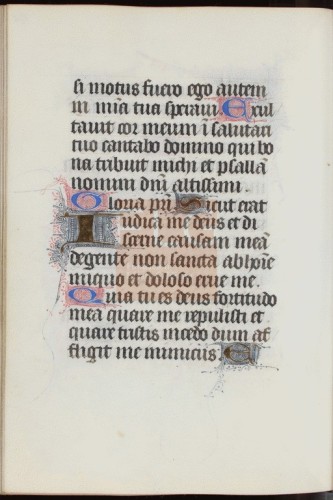 si motus fuero ego autem
in mīa tua speraui Exul
tauit cor meum ī salutari
tuo cantabo domino qui bo
na tribuit michi et psallā
nomini dn̄i altissimi.
Gloria pr̄i Sicut erat
Iudica me deus et di
scerne causam meā
de gente non sancta ab hoīe
iniquo et doloso erue me.
Quia tu es deus fortitudo
mea quare me repulisti et
quare tristis incedo dum af
fligit me inimicus. E